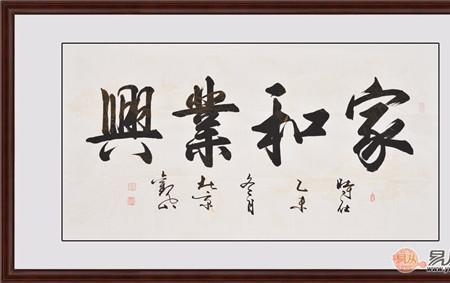 家和業興
時在
乙未
冬月
北京
易从
www.y